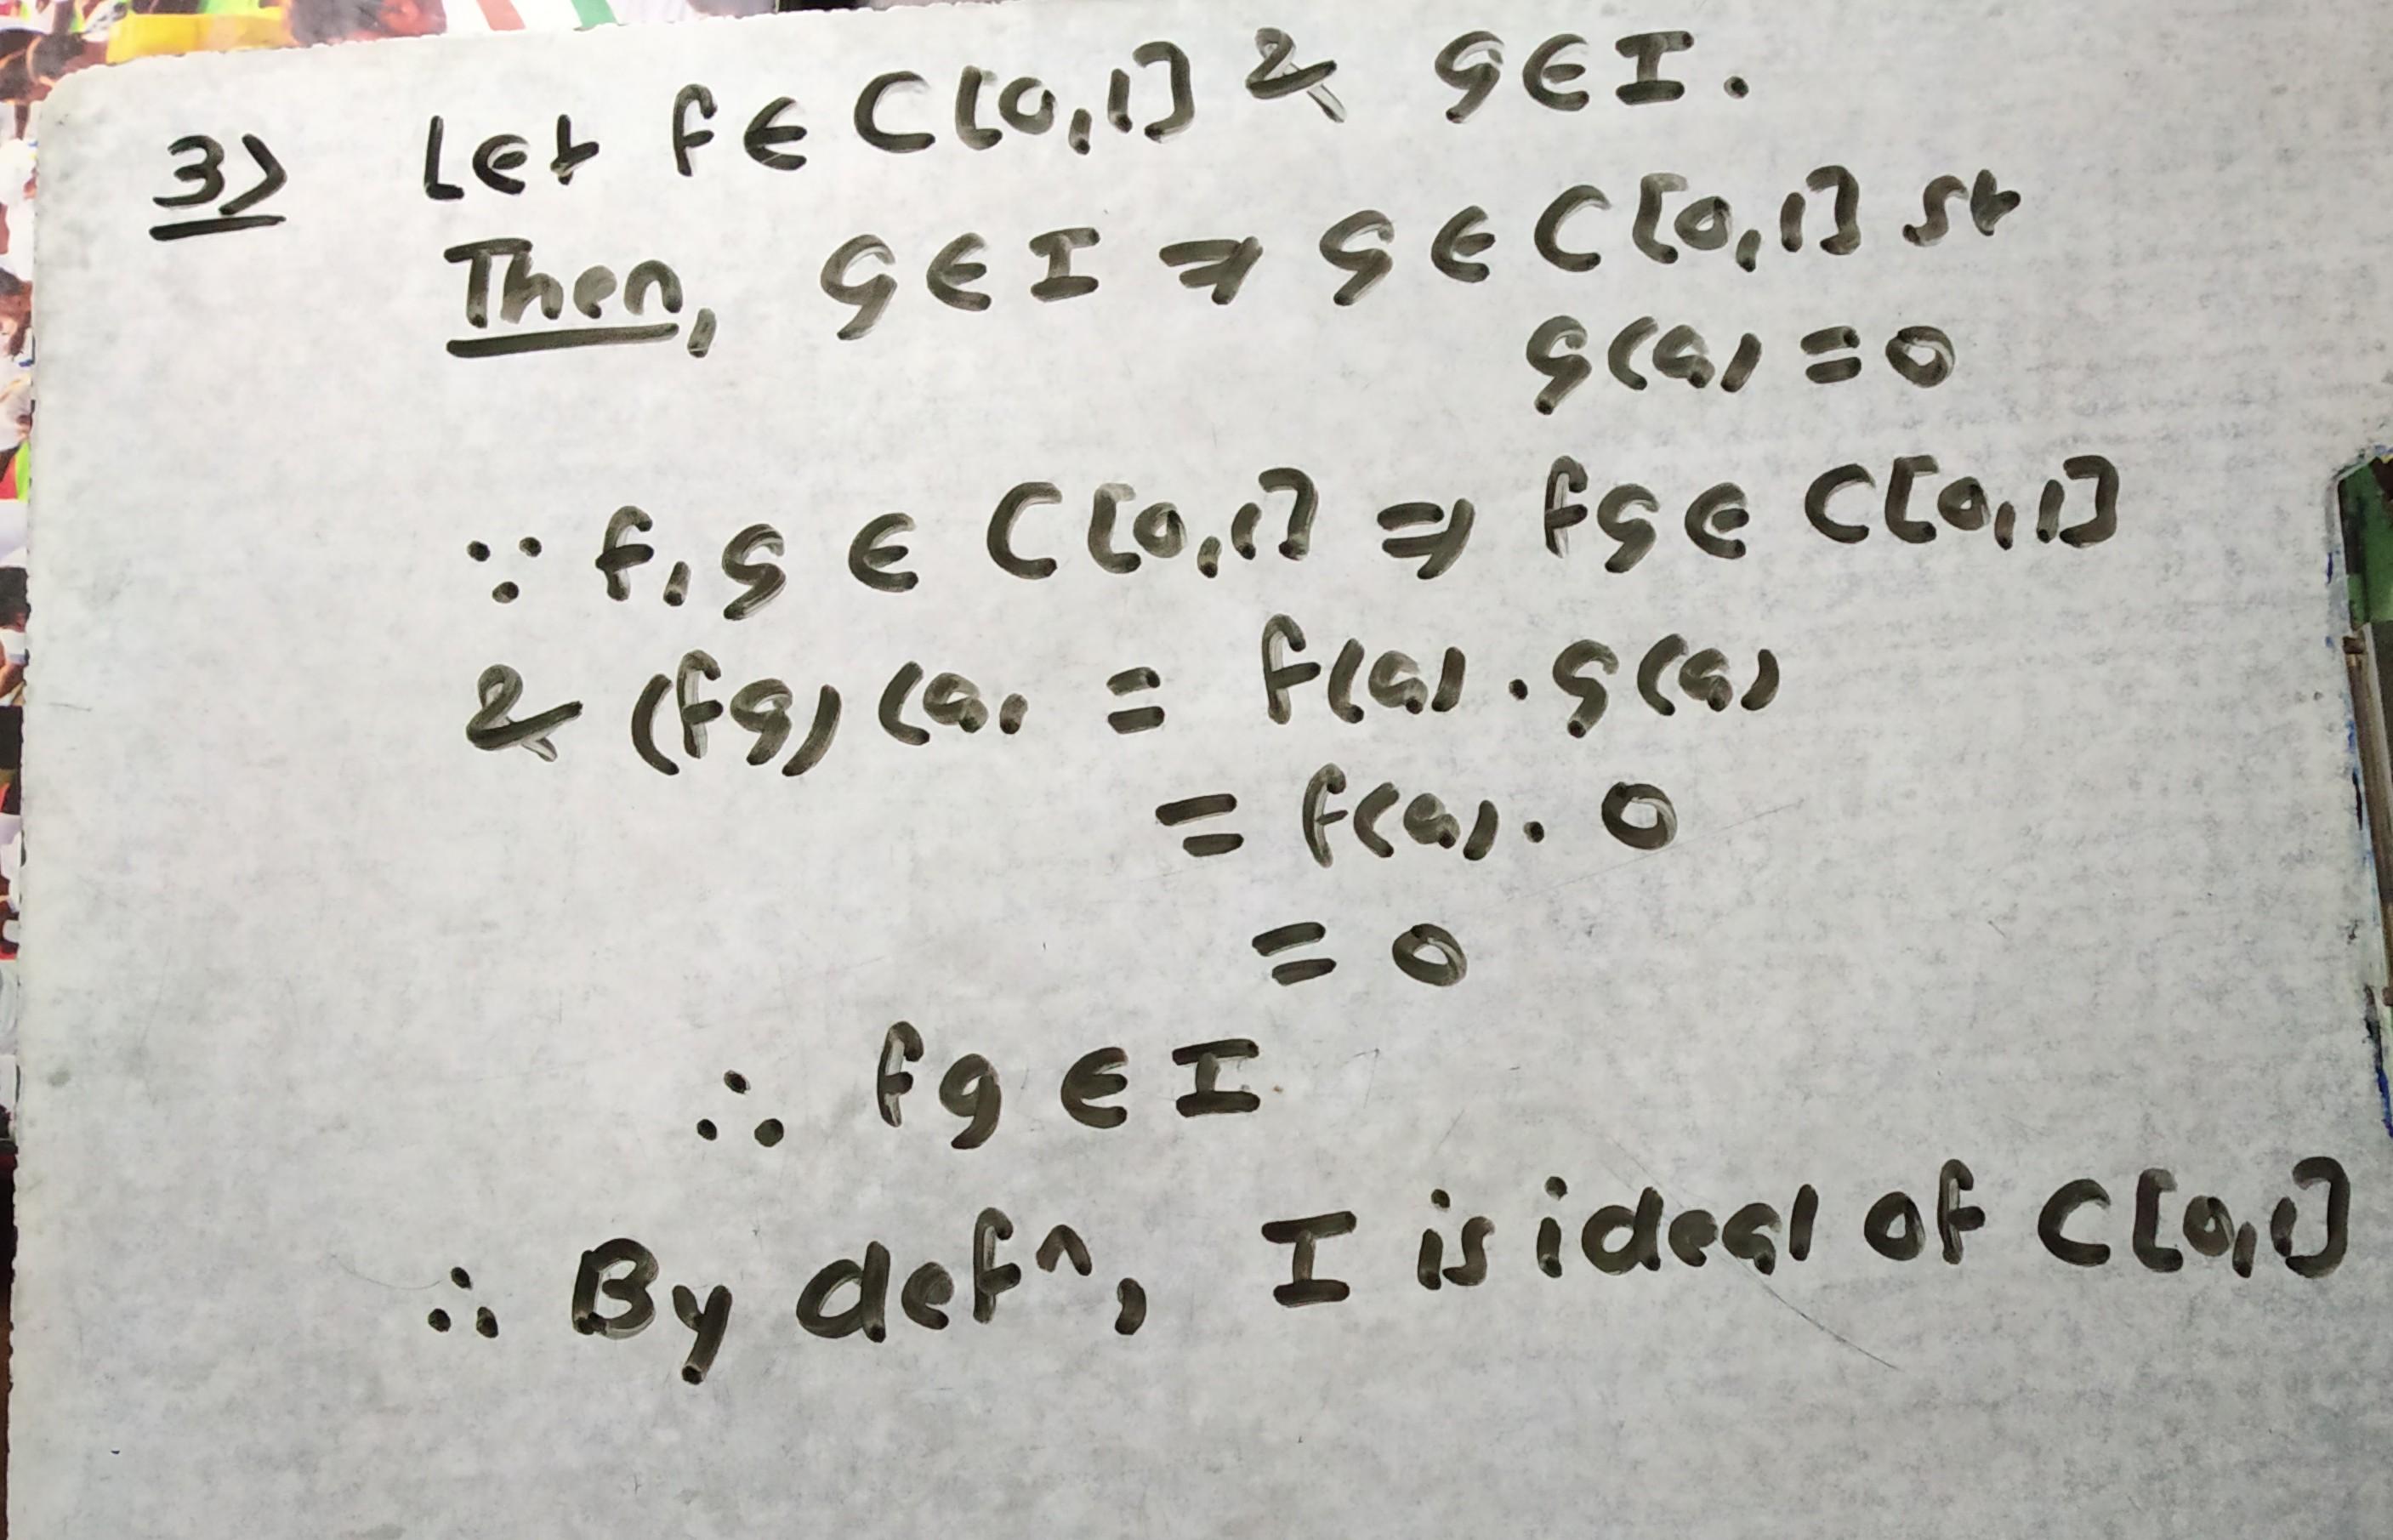 3> Let f ∈ C[0,1] & g ∈ I.
Then, g ∈ I ⇒ g ∈ C[0,1] st
g(a) = 0
∵ f, g ∈ C[0,1] ⇒ fg ∈ C[0,1]
& (fg)(a) = f(a) . g(a)
= f(a) . 0
= 0
∴ fg ∈ I
∴ By defn, I is ideal of C[0,1]